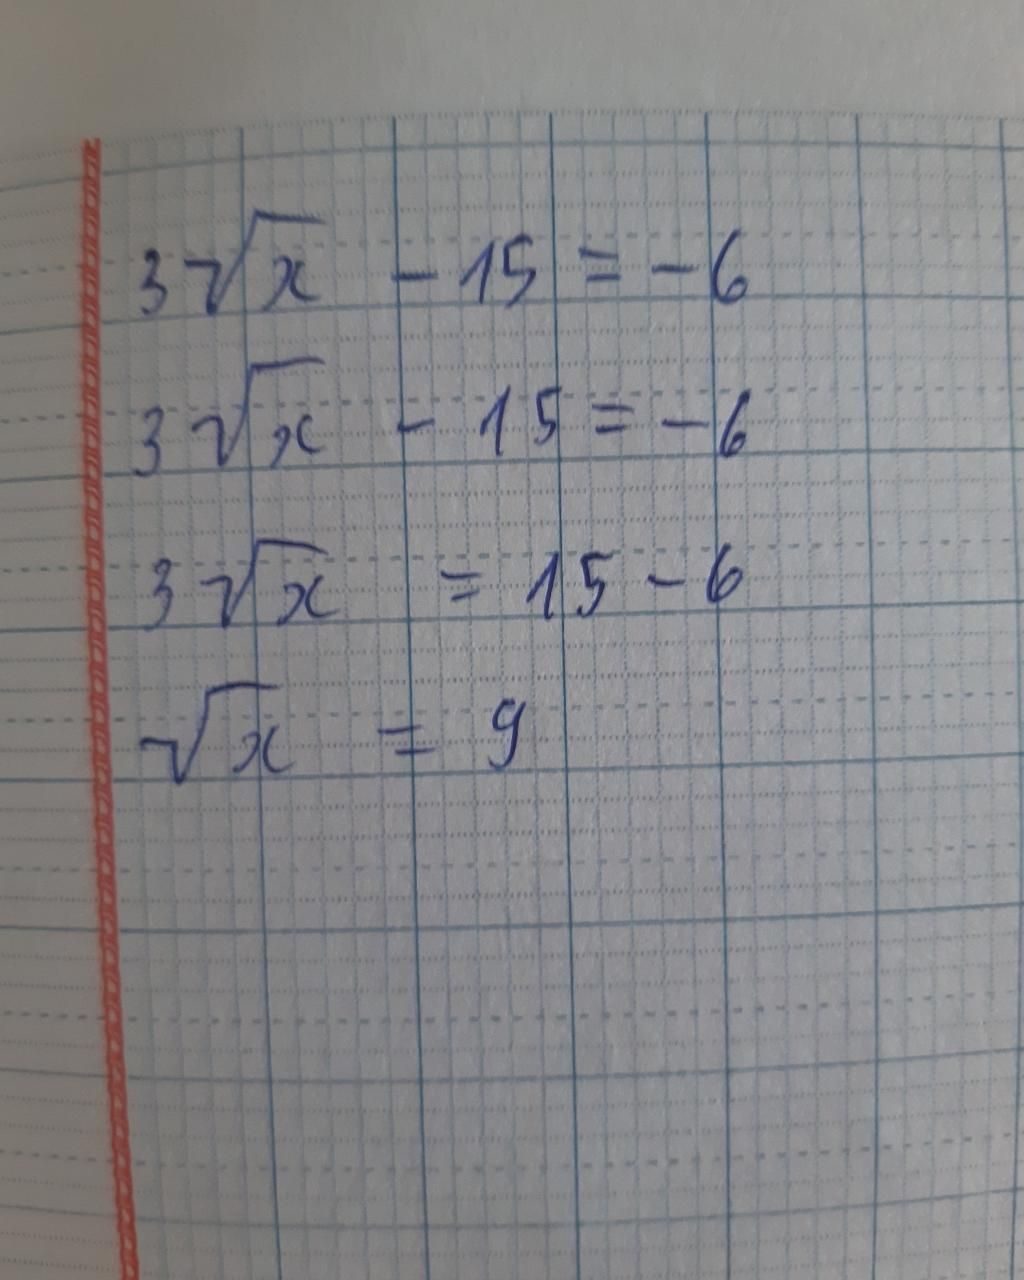 3√x - 15 = -6
3√x - 15 = -6
3√x = 15 - 6
√x = 9